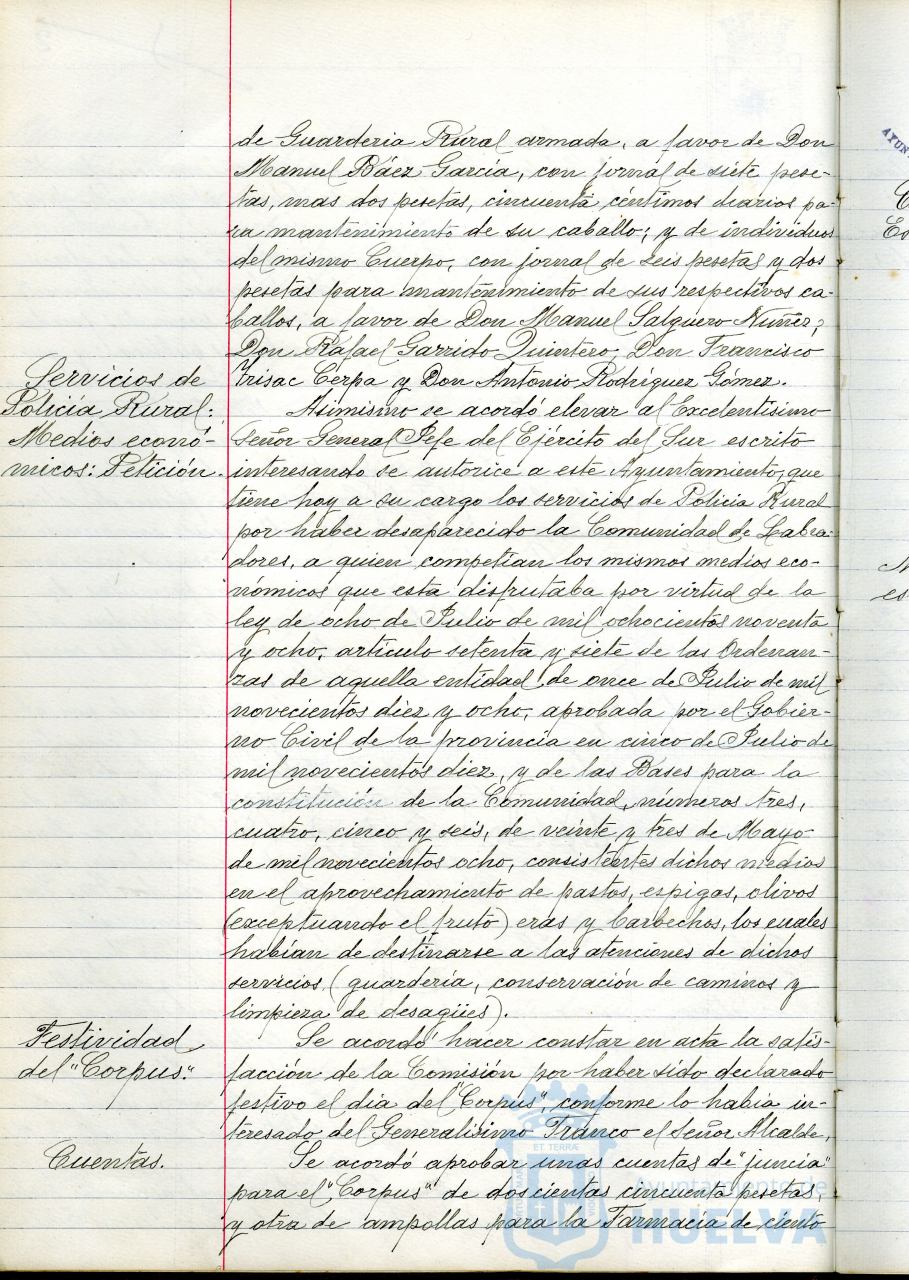 de Guarderia Rural armada, a favor de Don
Manuel Báez García, con jornal de siete pese-
tas, mas dos pesetas, cincuenta céntimos diarios pa-
ra mantenimiento de su caballo; y de individuos
del mismo Cuerpo, con jornal de seis pesetas y dos
pesetas para mantenimiento de sus respectivos ca-
ballos, a favor de Don Manuel Salguero Nuñez,
Don Rafael Garrido Quintero, Don Francisco
Trisac Cerpa y Don Antonio Rodríguez Gómez.
Servicios de
Policía Rural:
Medios econó-
micos: Petición.
Asimismo se acordó elevar al Excelentísimo
Señor General Jefe del Ejército del Sur escrito
interesando se autorice a este Ayuntamiento, que
tiene hoy a su cargo los servicios de Policia Rural
por haber desaparecido la Comunidad de Labra-
dores, a quien competían los mismos medios eco-
nómicos que esta disfrutaba por virtud de la
ley de ocho de Julio de mil ochocientos noventa
y ocho, artículo setenta y siete de las Ordenan-
zas de aquella entidad de once de Julio de mil
novecientos diez y ocho, aprobada por el Gobier-
no Civil de la provincia en cinco de Julio de
mil novecientos diez, y de las Bases para la
constitución de la Comunidad, números tres,
cuatro, cinco y seis, de veinte y tres de Mayo
de mil novecientos ocho, consistentes dichos medios
en el aprovechamiento de pastos, espigas, olivos
(exceptuando el fruto) eras y barbechos, los cuales
habían de destinarse a las atenciones de dichos
servicios (guardería, conservación de caminos y
limpieza de desagües).
Festividad
del "Corpus".
Se acordó hacer constar en acta la satis-
facción de la Comisión por haber sido declarado
festivo el día del "Corpus", conforme lo había in-
teresado del Generalísimo Franco el Señor Alcalde,
Cuentas.
Se acordó aprobar unas cuentas de "juncia"
para el "Corpus" de doscientas cincuenta pesetas,
y otra de ampollas para la Farmacia de ciento
Ayuntamiento de
HUELVA